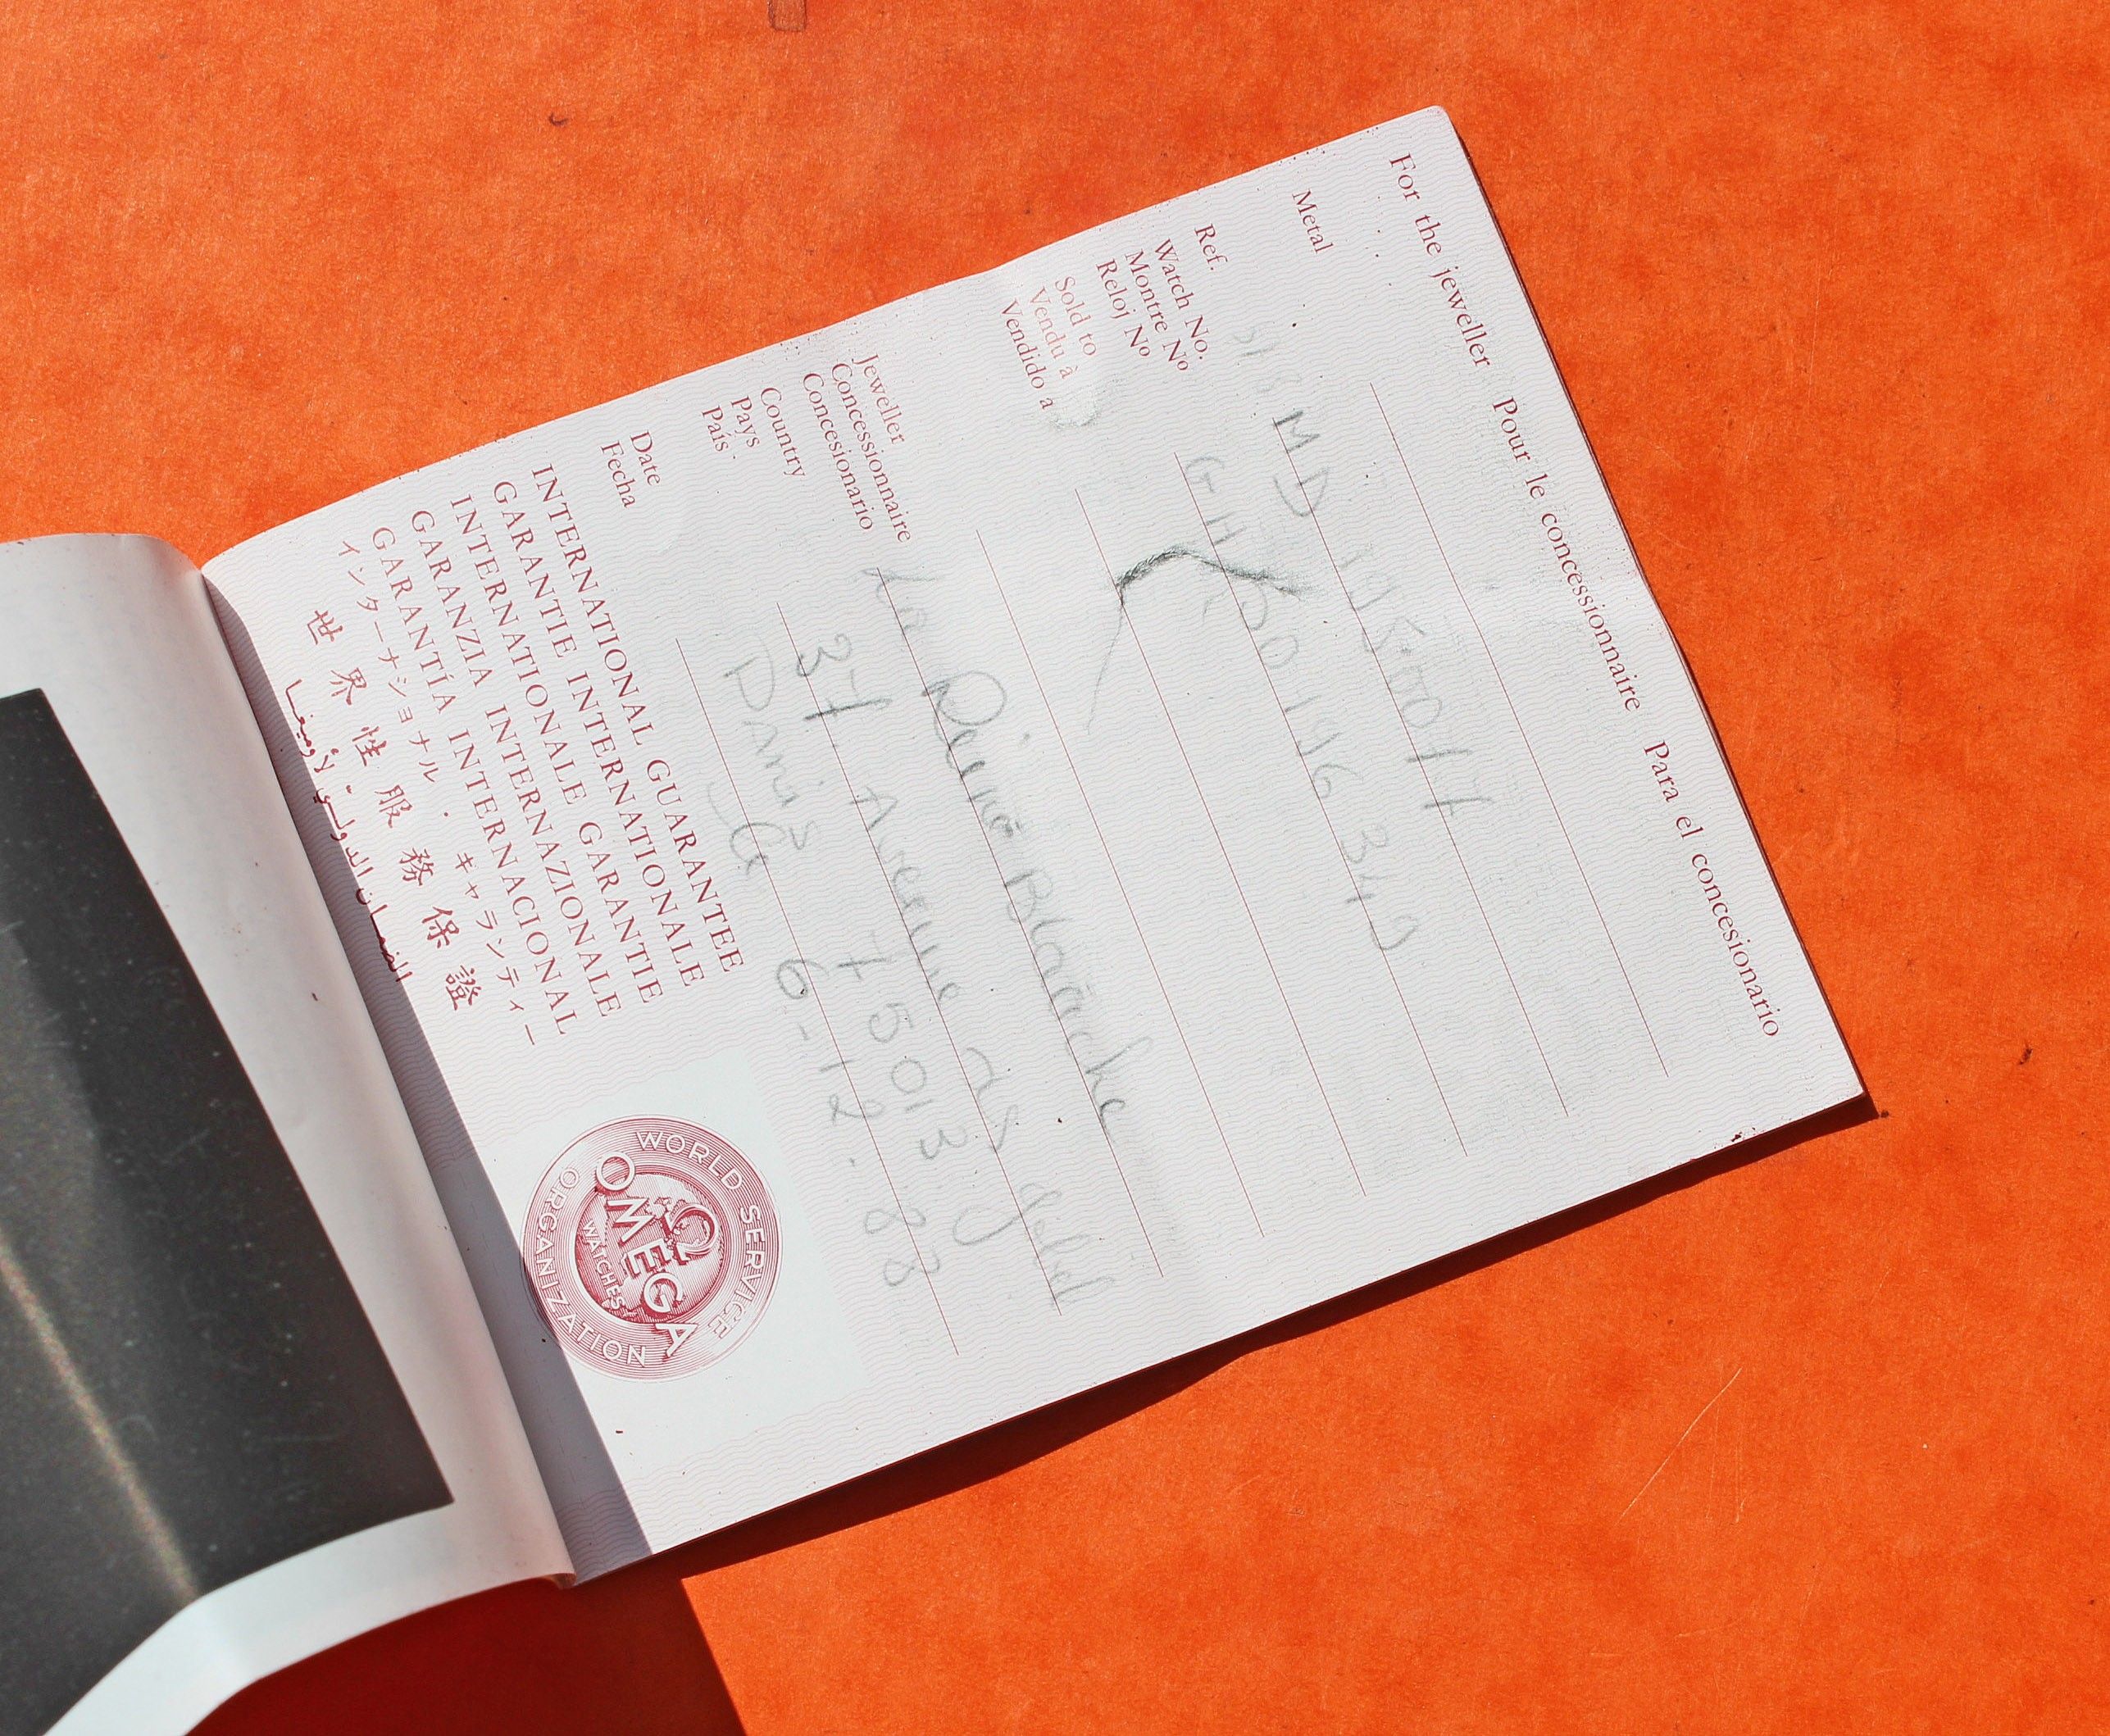 For the jeweller Pour le concessionnaire Para el concesionario
Metal
Ref. MD
Watch No.
Montre No
Reloj No
Sold to
Vendu à
Vendido a
Jeweller
Concessionnaire
Concesionario
La Reine Blanche
Country
Pays
País
37. Avenue
75013
Paris
Date
Fecha
6-12.88
INTERNATIONAL GUARANTEE
GARANTIE INTERNATIONALE
INTERNATIONALE GARANTIE
GARANZIA INTERNAZIONALE
GARANTÍA INTERNACIONAL
インターナショナル・ギャランティー
世界性服務保證
الضمان الدولي لأوميغا
WORLD SERVICE
Ω
OMEGA
WATCHES
ORGANIZATION